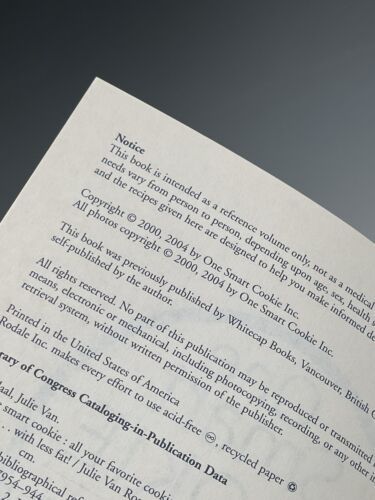 Notice
This book is intended as a reference volume only, not as a medical
needs vary from person to person, depending upon age, sex, health
and the recipes given here are designed to help you make informed de
Copyright © 2000, 2004 by One Smart Cookie Inc.
All photos copyright © 2000, 2004 by One Smart Cookie Inc.
This book was previously published by Whitecap Books, Vancouver, British C
self-published by the author.
All rights reserved. No part of this publication may be reproduced or transmitted
means, electronic or mechanical, including photocopying, recording, or any other i
retrieval system, without written permission of the publisher.
Printed in the United States of America
Rodale Inc. makes every effort to use acid-free ♾, recycled paper ♻
rary of Congress Cataloging-in-Publication Data
daal, Julie Van.
smart cookie : all your favorite cooki
. . . with less fat! / Julie Van Ro
cm.
bibliographical ref
7954-944